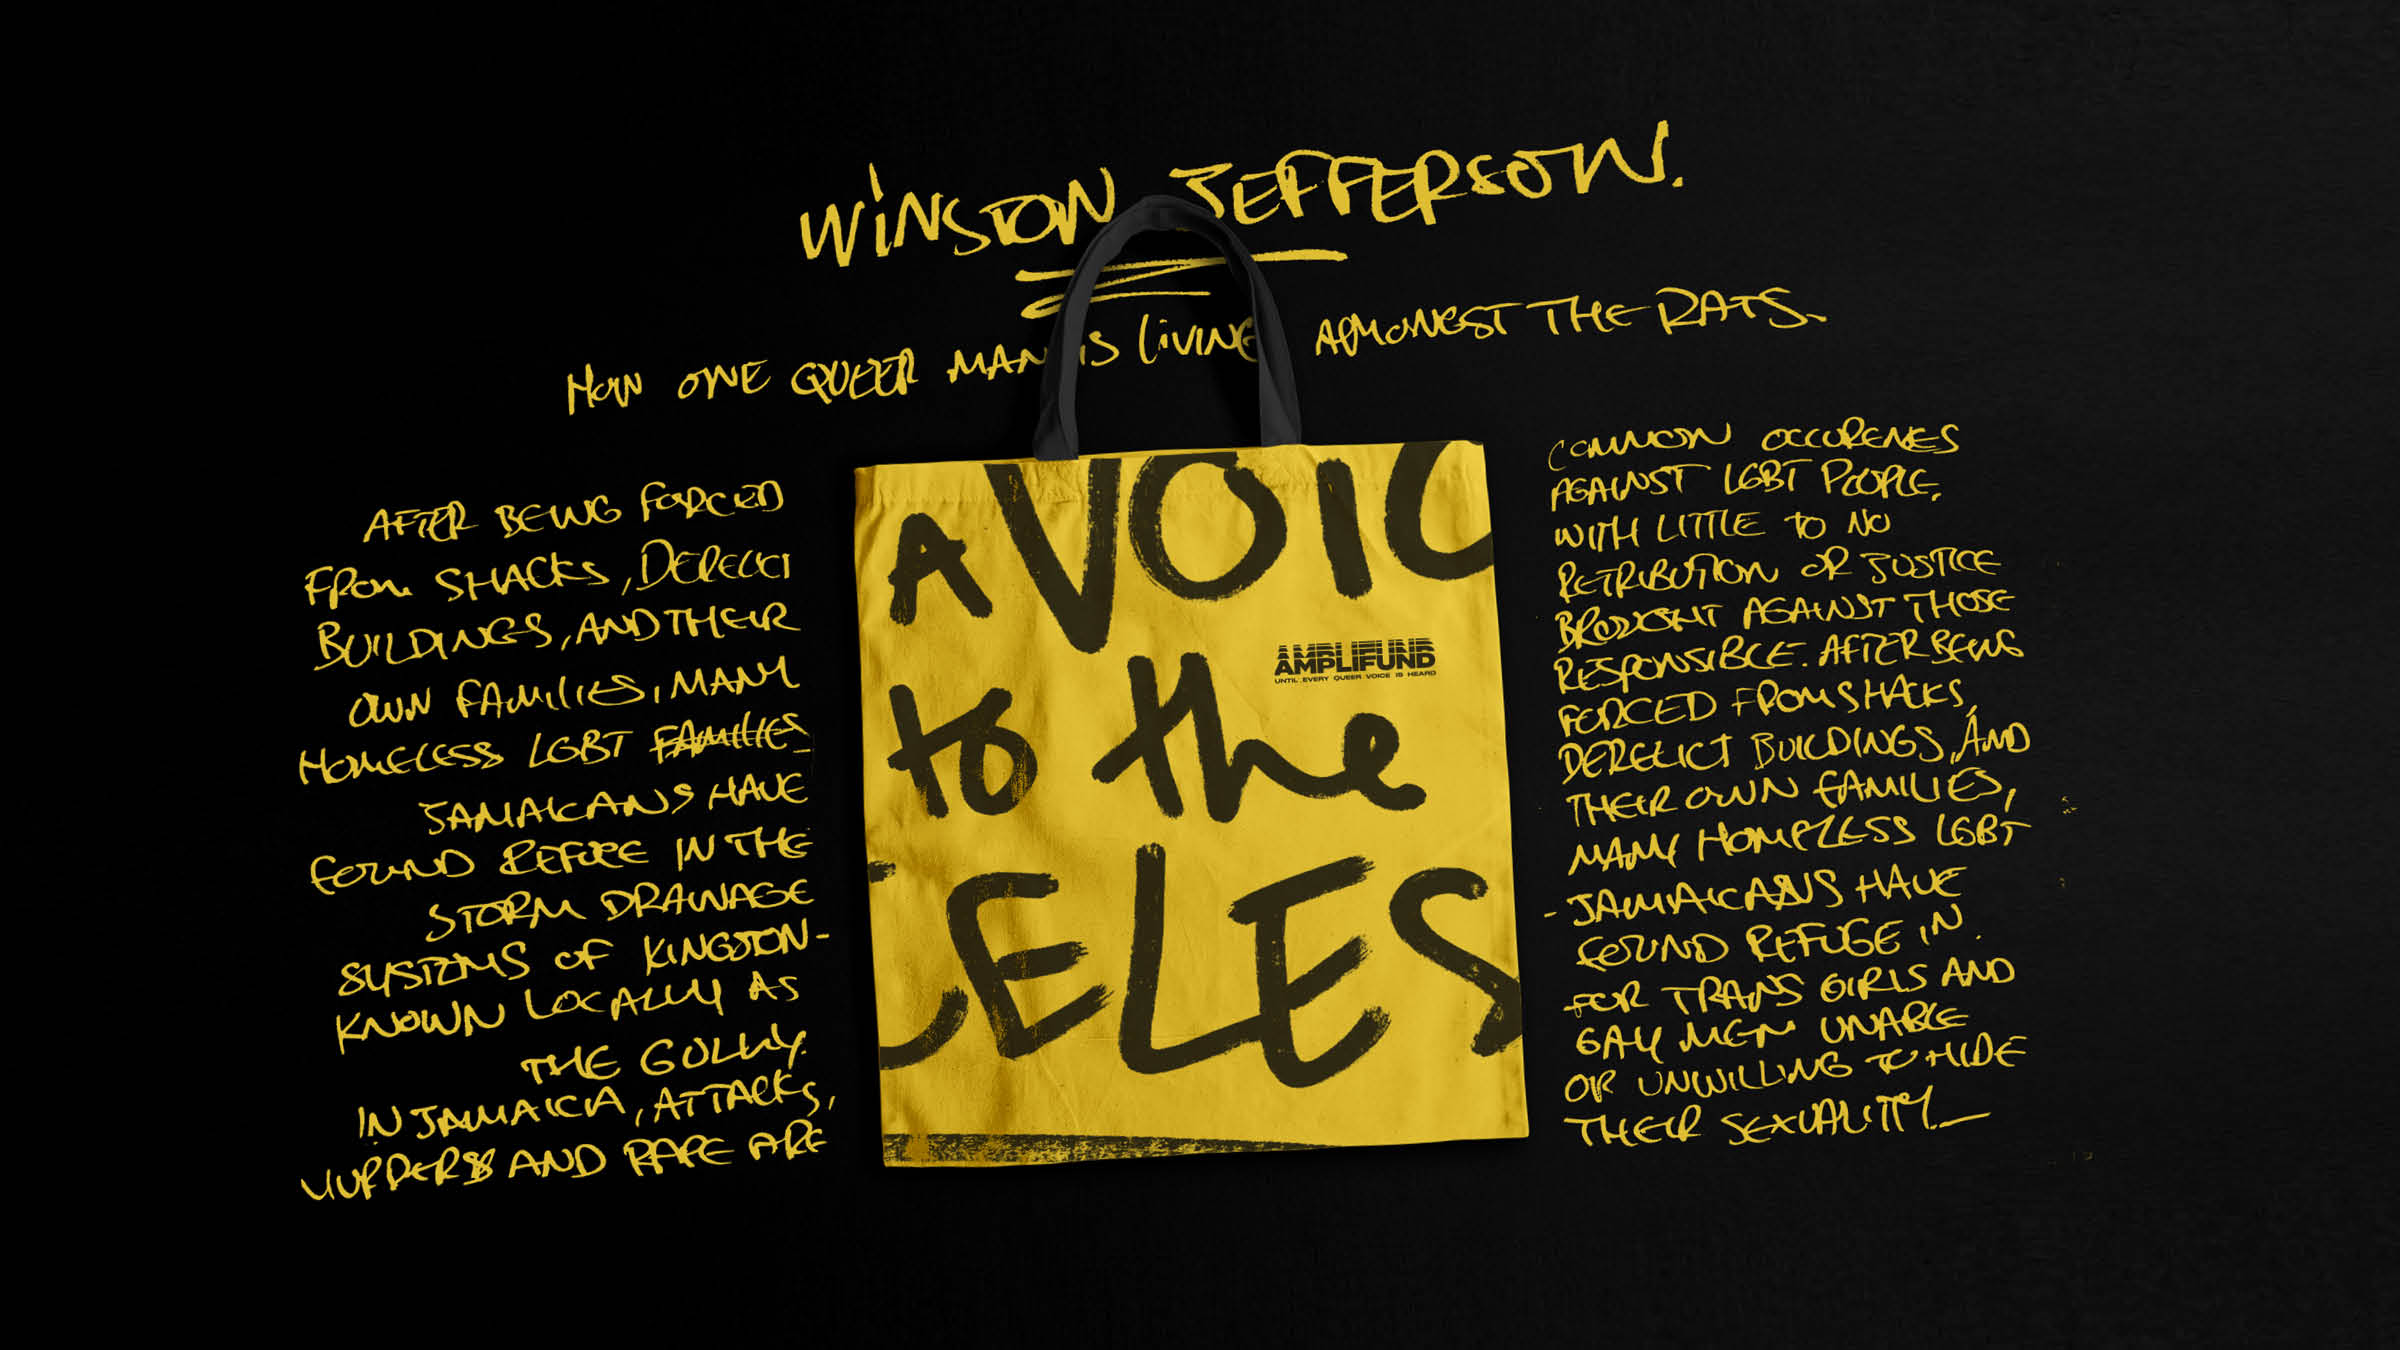 WINSTON JEFFERSON.
HOW ONE QUEER MAN IS LIVING AMONGST THE RATS.
AFTER BEING FORCED
FROM SHACKS, DERELICT
BUILDINGS, AND THEIR
OWN FAMILIES, MANY
HOMELESS LGBT FAMILIES
JAMAICANS HAVE
FOUND REFUGE IN THE
STORM DRAINAGE
SYSTEMS OF KINGSTON-
KNOWN LOCALLY AS
THE GULLY.
IN JAMAICA, ATTACKS,
MURDERS AND RAPE ARE
A VOIC
to the
CELES
AMPLIFUND
UNTIL EVERY QUEER VOICE IS HEARD
COMMON OCCURENCES
AGAINST LGBT PEOPLE,
WITH LITTLE TO NO
RETRIBUTION OR JUSTICE
BROUGHT AGAINST THOSE
RESPONSIBLE. AFTER BEING
FORCED FROM SHACKS,
DERELICT BUILDINGS, AND
THEIR OWN FAMILIES,
MANY HOMELESS LGBT
- JAMAICANS HAVE
FOUND REFUGE IN.
FOR TRANS GIRLS AND
GAY MEN UNABLE
OR UNWILLING TO HIDE
THEIR SEXUALITY.